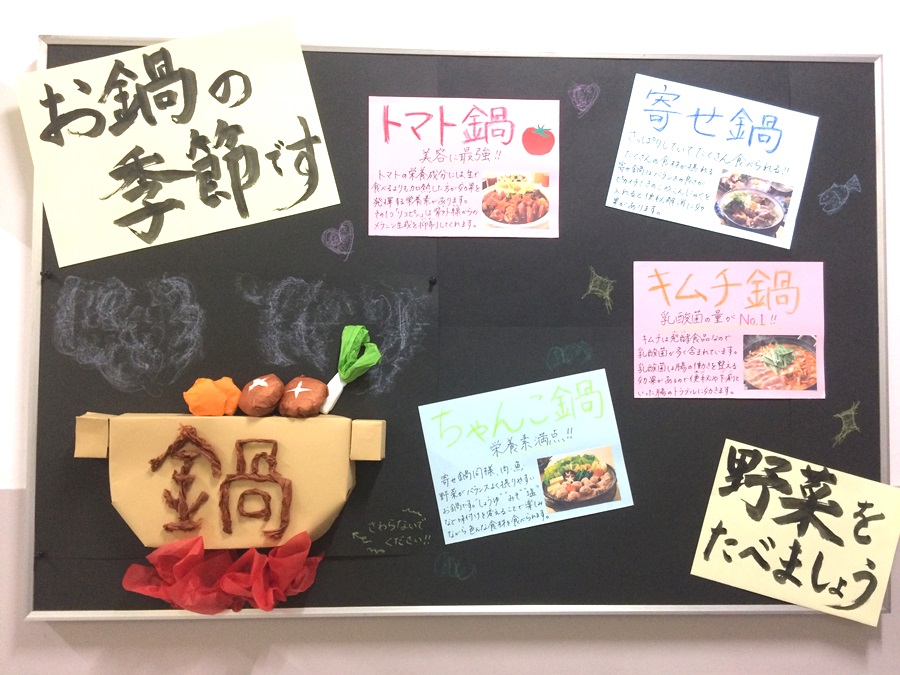 お鍋の
季節です
トマト鍋
美容に最強!!
トマトの栄養成分には生で
食べるよりも加熱した方が効果を
発揮する栄養素があります。
その1つ"リコピン"は紫外線からの
メラニン生成を抑制してくれます。
寄せ鍋
さっぱりしていてたくさん食べられる!!
たくさんの食材が採れる
寄せ鍋はバランスの良さが
入れると便秘解消に効
果があります。
キムチ鍋
乳酸菌の量がNo.1!!
キムチは発酵食品なので
乳酸菌が多く含まれています。
乳酸菌は腸の働きを整える
効果があるので便秘や下痢と
いった腸のトラブルに効きます。
ちゃんこ鍋
栄養素満点!!
寄せ鍋同様、肉、魚
野菜がバランスよく採りやすい
お鍋です。"しょうゆ""みそ""塩"
など味付けを変えることで楽しみ
ながら色んな食材を食べられます。
鍋
さわらないで
ください!!
野菜を
たべましょう